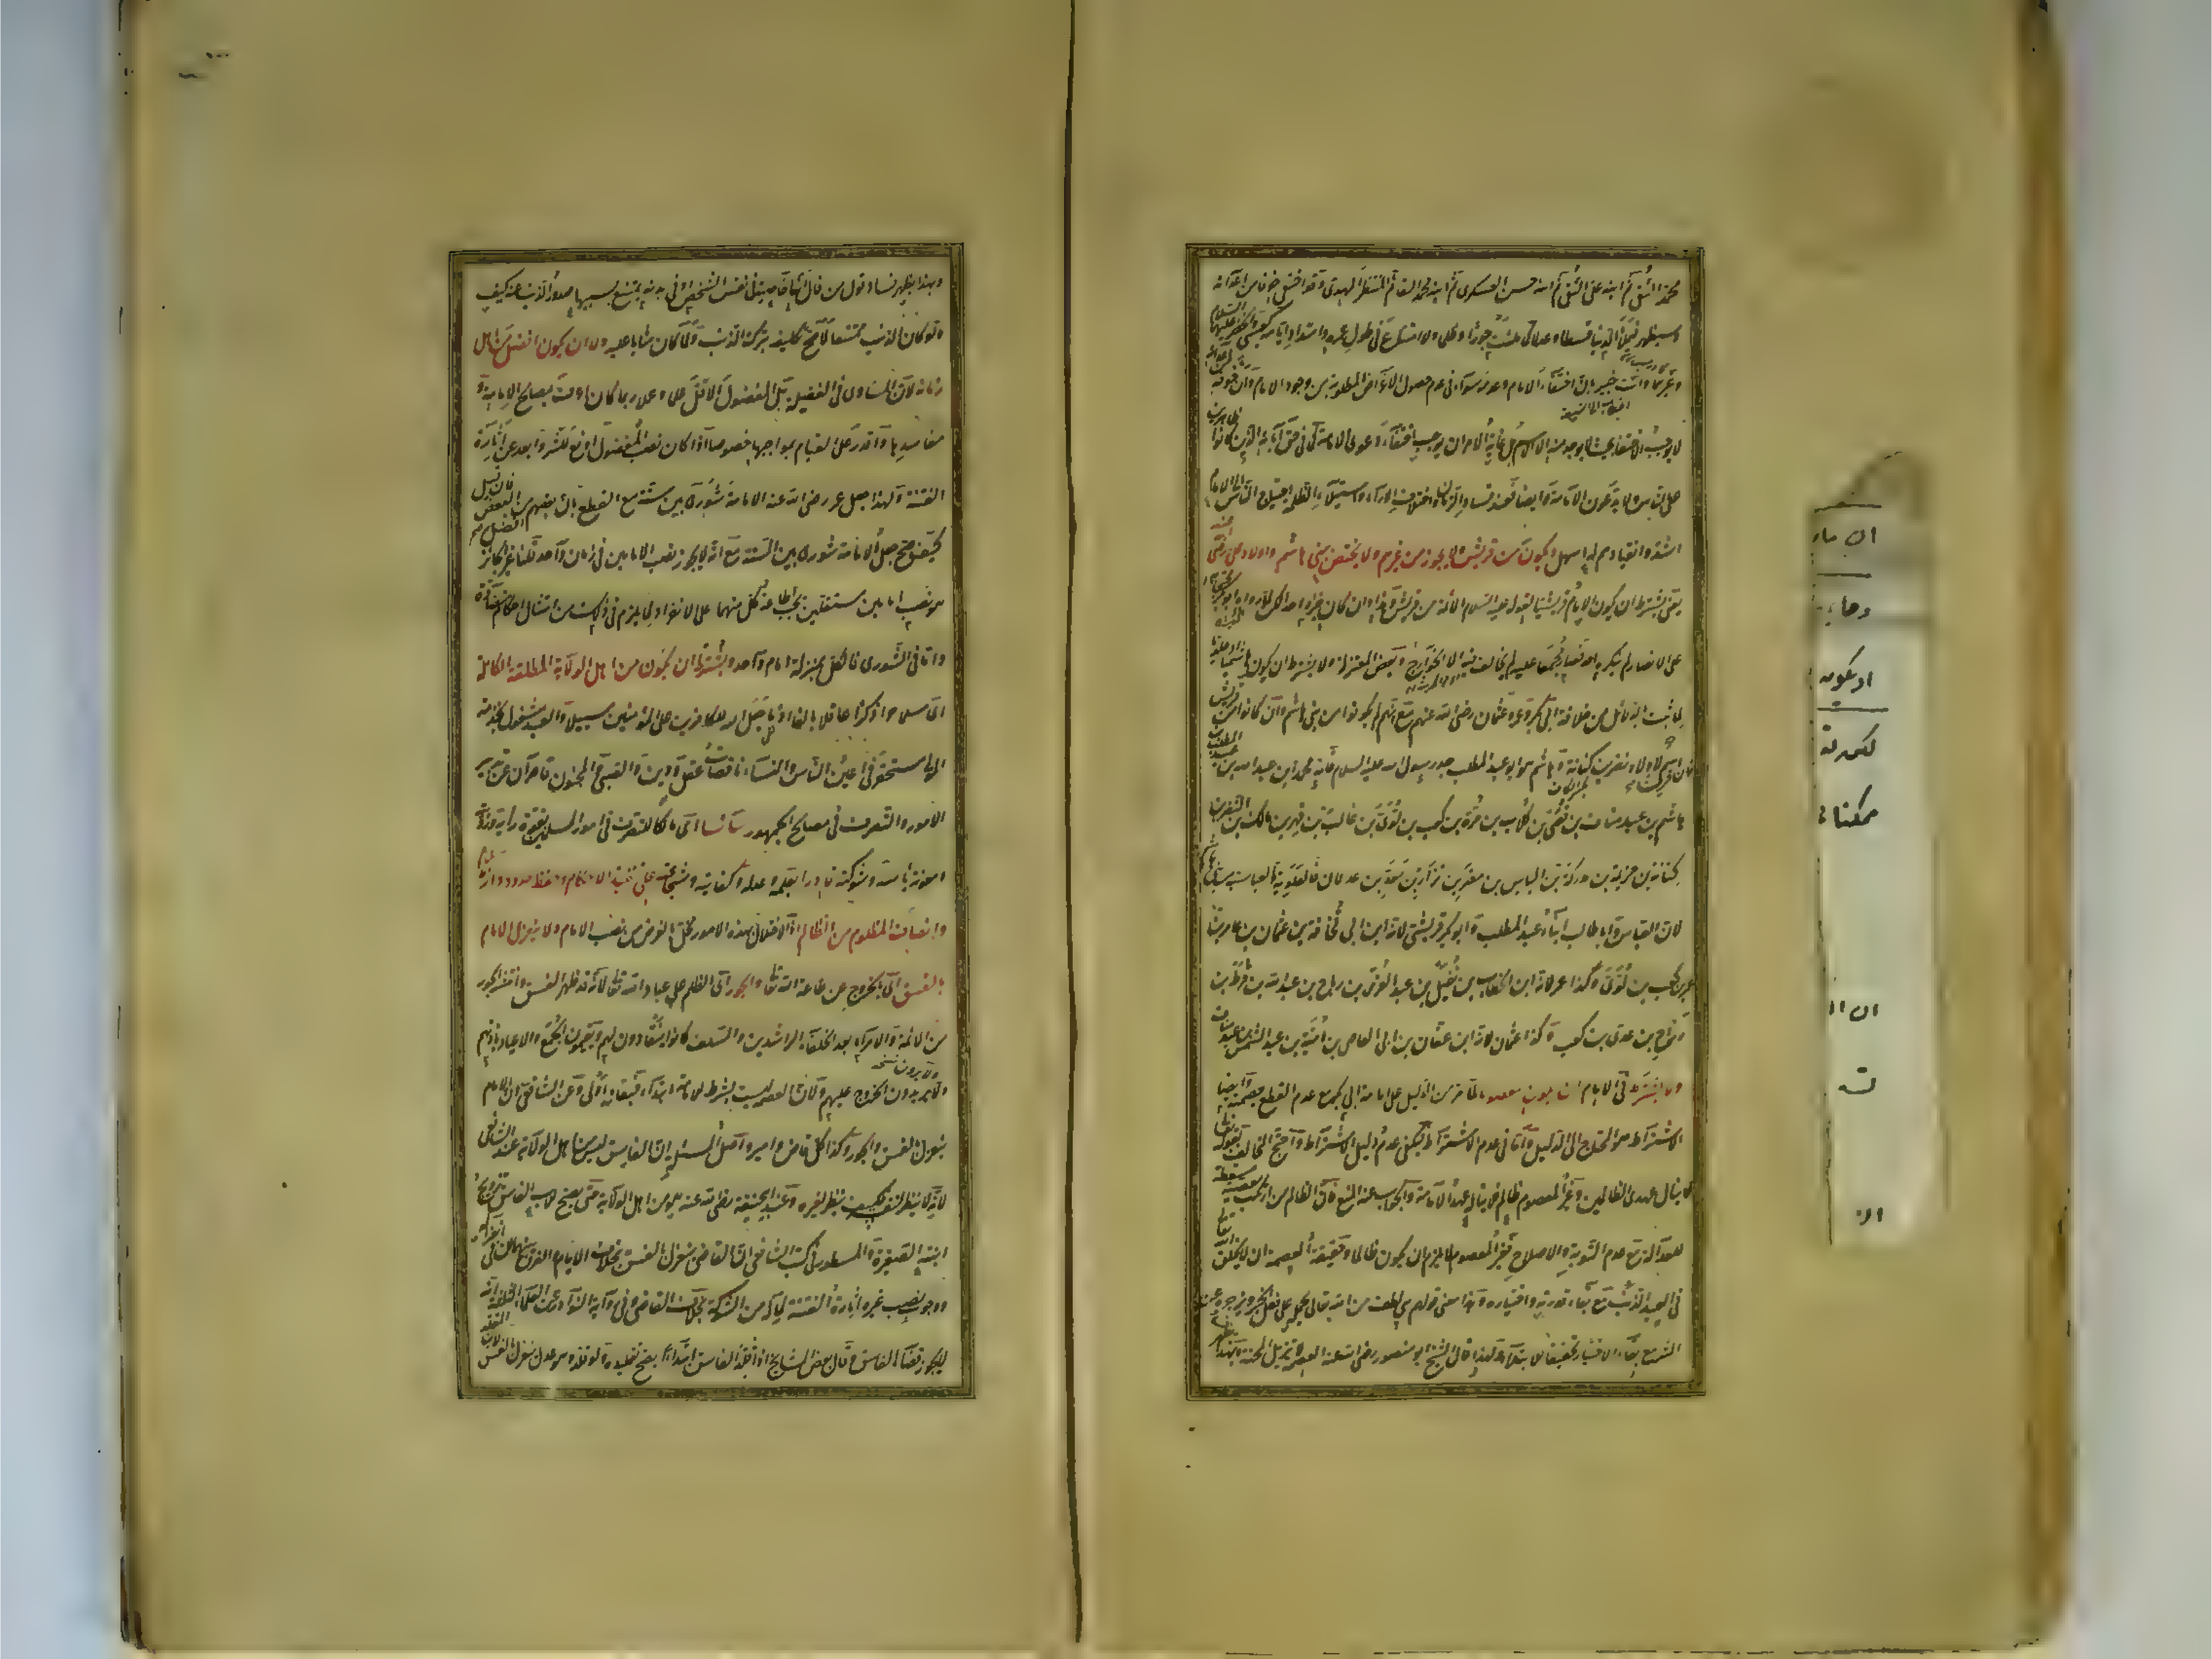 محمد التقي ثم ابنه علي النقي ثم ابنه حسن العسكري ثم ابنه محمد القائم المنتظر المهدي وقد اختفى خوفا من اعدائه
وسيظهر فيملأ الدنيا قسطا وعدلا كما ملئت جورا وظلما ولا امتناع في طول عمره وامتداد ايامه كعيسى والخضر عليهما السلام
وغيرهما وانت خبير بان اختفاء الامام وعدمه سواء في عدم حصول الاغراض المطلوبة من وجود الامام وان خوفه من الاعداء
لا يوجب الاختفاء بحيث لا يوجد منه الا الاسم بل غاية الامر ان يوجب اختفاء دعوى الامامة كما في حق آبائه الذين كانوا ظاهرين
على الناس ولا يدعون الامامة وايضا فعند فساد الزمان واختلاف الآراء واستيلاء الظلمة احتياج الناس الى الامام
اشد وانقيادهم له اسهل ويكون من قريش ولا يجوز من غيرهم ولا يختص ببني هاشم واولاد علي رضي
يعني يشترط ان يكون الامام قريشيا لقوله عليه السلام الائمة من قريش وهذا وان كان خبرا واحدا لكن لما رواه ابو بكر محتجا به
على الانصار لم ينكره احد فصار مجمعا عليه لم يخالف فيه الا الخوارج وبعض المعتزلة ولا يشترط ان يكون هاشميا او علويا
لما ثبت بالدلائل من خلافة ابي بكر وعمر وعثمان رضي الله عنهم مع انهم لم يكونوا من بني هاشم وان كانوا من قريش
فان قريشا اسم لاولاد نضر بن كنانة وهاشم هو ابو عبد المطلب جد رسول الله عليه السلام فانه محمد بن عبد الله بن عبد المطلب
هاشم بن عبد مناف بن قصي بن كلاب بن مرة بن كعب بن لؤي بن غالب بن فهر بن مالك بن النضر بن
كنانة بن خزيمة بن مدركة بن الياس بن مضر بن نزار بن معد بن عدنان فالعلوية والعباسية من بني هاشم
لان العباس وابا طالب ابناء عبد المطلب وابو بكر قريشي لانه ابن ابي قحافة بن عثمان بن عامر بن
عمر بن كعب بن لؤي وكذا عمر لانه ابن الخطاب بن نفيل بن عبد العزى بن رباح بن عبد الله بن قرط بن
رزاح بن عدي بن كعب وكذا عثمان لانه ابن عفان بن ابي العاص بن امية بن عبد الشمس بن عبد مناف
ولا يشترط في الامام ان يكون معصوما لما مر من الدليل على امامة ابي بكر مع عدم القطع بعصمته وايضا
الاشتراط هو المحتاج الى الدليل واما في عدم الاشتراط فيكفي عدم دليل الاشتراط واحتج المخالف بقوله تعالى
لا ينال عهدي الظالمين وغير المعصوم ظالم فلا يناله عهد الامامة والجواب عنه المنع فان الظالم من ارتكب معصية مسقطة
للعدالة مع عدم التوبة والاصلاح فغير المعصوم لا يلزم ان يكون ظالما وحقيقة العصمة ان لا يخلق الله تعالى
في العبد الذنب مع بقاء قدرته واختياره وهذا معنى قولهم هي لطف من الله تعالى يحمله على فعل الخير ويزجره عن
الشر مع بقاء الاختيار تحقيقا للابتلاء ولهذا قال الشيخ ابو منصور رضي الله عنه العصمة لا تزيل المحنة وبهذا
وبهذا يظهر فساد قول من قال انها خاصية في نفس الشخص او في بدنه يمتنع بسببها صدور الذنب عنه كيف
ولو كان الذنب ممتنعا لما صح تكليفه بترك الذنب ولما كان مثابا عليه ولا ان يكون افضل من اهل
زمانه لان المساوي في الفضيلة بل المفضول الاقل علما وعملا ربما كان اعرف بمصالح الامامة و
مفاسدها واقدر على القيام بمواجبها خصوصا اذا كان نصب المفضول ادفع للشر وابعد عن اثارة
الفتنة ولهذا جعل عمر رضي الله عنه الامامة شورى بين ستة مع القطع بان بعضهم افضل من البعض فان قيل
كيف صح جعل الامامة شورى بين الستة مع انه لا يجوز نصب الامامين في زمان واحد قلنا غير الجائز
هو نصب امامين مستقلين يجب اطاعة كل منهما على الانفراد لما يلزم في ذلك من امتثال احكام متضادة
واما في الشورى فالكل بمنزلة امام واحد ويشترط ان يكون من اهل الولاية المطلقة الكاملة
اي مسلما حرا ذكرا عاقلا بالغا اذ ما جعل الله للكافرين على المؤمنين سبيلا والعبد مشغول بخدمة
المولى مستحقر في اعين الناس والنساء ناقصات عقل ودين والصبي والمجنون قاصران عن تدبير
الامور والتصرف في مصالح الجمهور سائسا اي مالكا للتصرف في امور المسلمين بقوة رأيه ورويته
ومعونة بأسه وشوكته قادرا بعلمه وعدله وكفايته وشجاعته على تنفيذ الاحكام وحفظ حدود دار الاسلام
وانصاف المظلوم من الظالم اذ الاخلال بهذه الامور مخل بالغرض من نصب الامام ولا ينعزل الامام
بالفسق اي بالخروج عن طاعة الله تعالى والجور اي الظلم على عباد الله تعالى لانه قد ظهر الفسق وانتشر الجور
من الائمة والامراء بعد الخلفاء الراشدين والسلف كانوا ينقادون لهم ويقيمون الجمع والاعياد باذنهم
ولا يريدون الخروج عليهم ولان العصمة ليست بشرط للامامة ابتداء فبقاء اولى وعن الشافعي ان الامام
ولا يرون نسخه
ينعزل بالفسق والجور وكذا كل قاض وامير واصل المسئلة ان الفاسق ليس من اهل الولاية عند الشافعي
لانه لا ينظر لنفسه فكيف ينظر لغيره وعند ابي حنيفة رضي الله عنه هو من اهل الولاية حتى يصح للاب الفاسق تزويج
ابنته الصغيرة والمسطور في كتب الشافعي ان القاضي ينعزل بالفسق بخلاف الامام والفرق ان في انعزاله
ووجوب نصب غيره اثارة الفتنة لما له من الشوكة بخلاف القاضي وفي رواية النوادر عن العلماء الثلثة انه
لا يجوز قضاء الفاسق وقال بعض المشايخ اذا قلد الفاسق ابتداء يصح تقليده ولو قلد وهو عدل ينعزل بالفسق